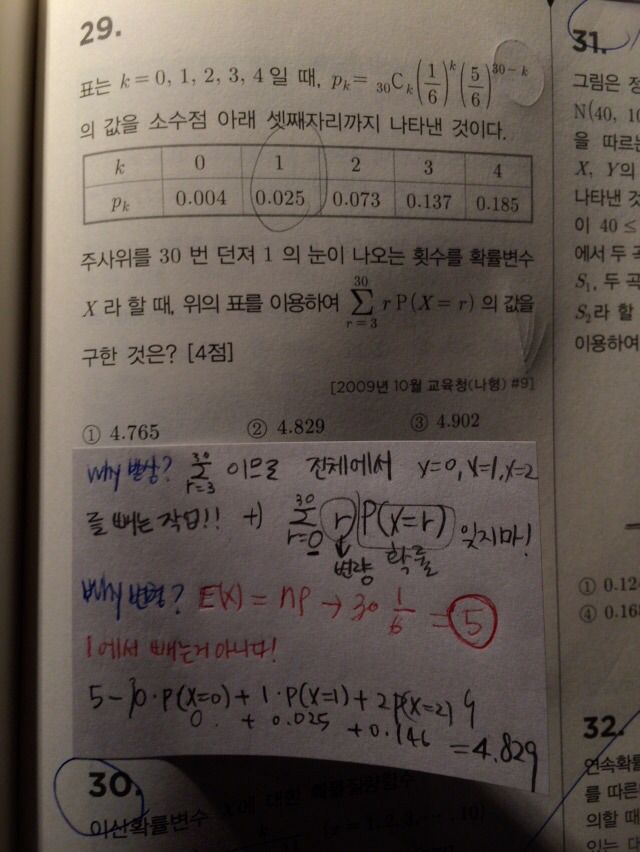 29.
표는 k = 0, 1, 2, 3, 4일 때, pₖ = ₃₀Cₖ(1/6)ᵏ(5/6)³⁰⁻ᵏ
의 값을 소수점 아래 셋째자리까지 나타낸 것이다.
k 0 1 2 3 4
pₖ 0.004 0.025 0.073 0.137 0.185
주사위를 30 번 던져 1 의 눈이 나오는 횟수를 확률변수
X 라 할 때, 위의 표를 이용하여 30 Σ r=3 r P(X = r) 의 값을
구한 것은? [4점]
[2009년 10월 교육청(나형) #9]
① 4.765 ② 4.829 ③ 4.902
why 발상? 30 Σ r=3 이므로 전체에서 X=0, X=1, X=2
를 빼는 작업!! +) 30 Σ r=0 r P(X=r) 잊지마!
변량 확률
why 변형? E(X) = np → 30 1/6 = 5
1에서 빼는거 아니다!
5 - { 0·P(X=0) + 1·P(X=1) + 2P(X=2) }
0 + 0.025 + 0.146 = 4.829
30.
이산확률변수 X에 대한 확률질량함수
31.
그림은 정
N(40, 10
을 따르는
X, Y의
나타낸 것
이 40 ≤
에서 두 곡
S₁, 두 곡
S₂라 할
이용하여
① 0.124
④ 0.168
32.
연속확률
를 따른
의할 때
있는 대